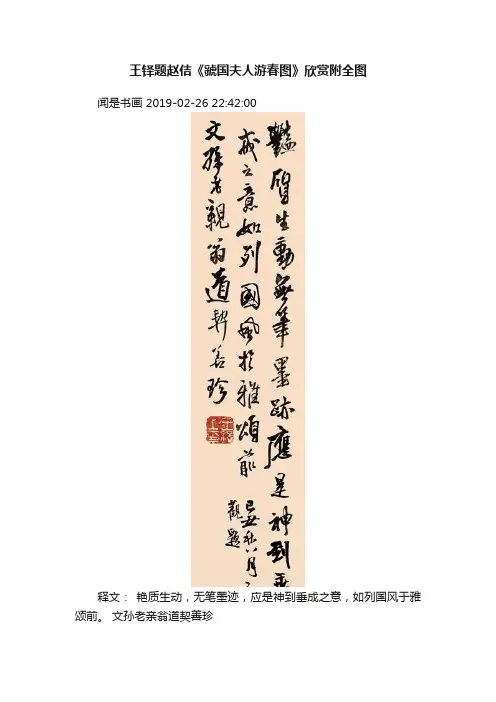 王铎题赵佶《虢国夫人游春图》欣赏附全图
闻是书画 2019-02-26 22:42:00
豔質生動無筆墨跡應是神到垂
戒之意如列國風於雅頌前
己丑秋八月
觀題
文孫老親翁道契善珍
释文： 艳质生动，无笔墨迹，应是神到垂成之意，如列国风于雅
颂前。 文孙老亲翁道契善珍